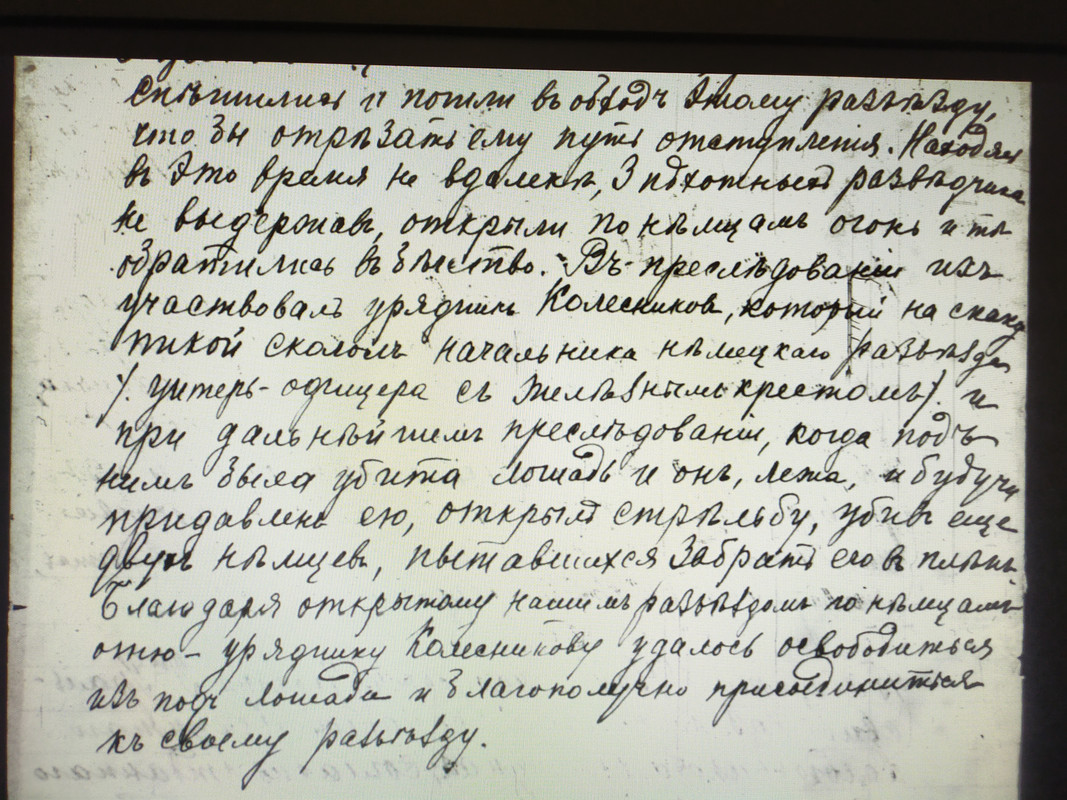 спѣшились и пошли въ обходъ этому разъѣзду,
что бы отрѣзать ему путь отступленія. Находясь
въ это время не вдалекѣ, 3 пѣхотныхъ развѣдчика
не выдержавъ, открыли по нѣмцамъ огонь и тѣ
обратились въ бѣгство. Въ преслѣдованіи ихъ
участвовалъ урядникъ Колесниковъ, который на скаку
пикой скололъ начальника нѣмецкаго разъѣзда
/. унтеръ-офицера съ желѣзнымъ крестомъ/. и
при дальнѣйшемъ преслѣдованіи, когда подъ
нимъ была убита лошадь и онъ, лежа, и будучи
придавленъ ею, открылъ стрѣльбу, убивъ еще
двухъ нѣмцевъ, пытавшихся забрать его въ плѣнъ.
Благодаря открытому нашимъ разъѣздомъ по нѣмцамъ
огню - уряднику Колесникову удалось освободиться
изъ подъ лошади и благополучно присоединиться
къ своему разъѣзду.